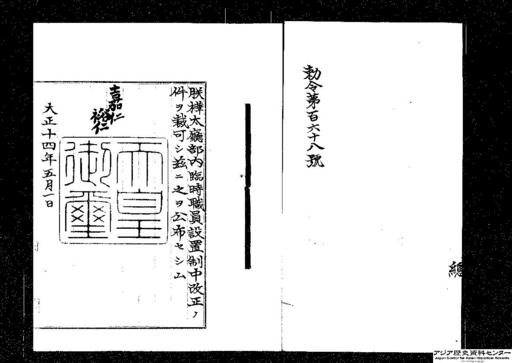 勅令第百六十八號
朕樺太廳部內臨時職員設置制中改正ノ
件ヲ裁可シ玆ニ之ヲ公布セシム
嘉仁
裕仁
天皇
御璽
大正十四年五月一日
アジア歴史資料センター
Japan Center for Asian Historical Records